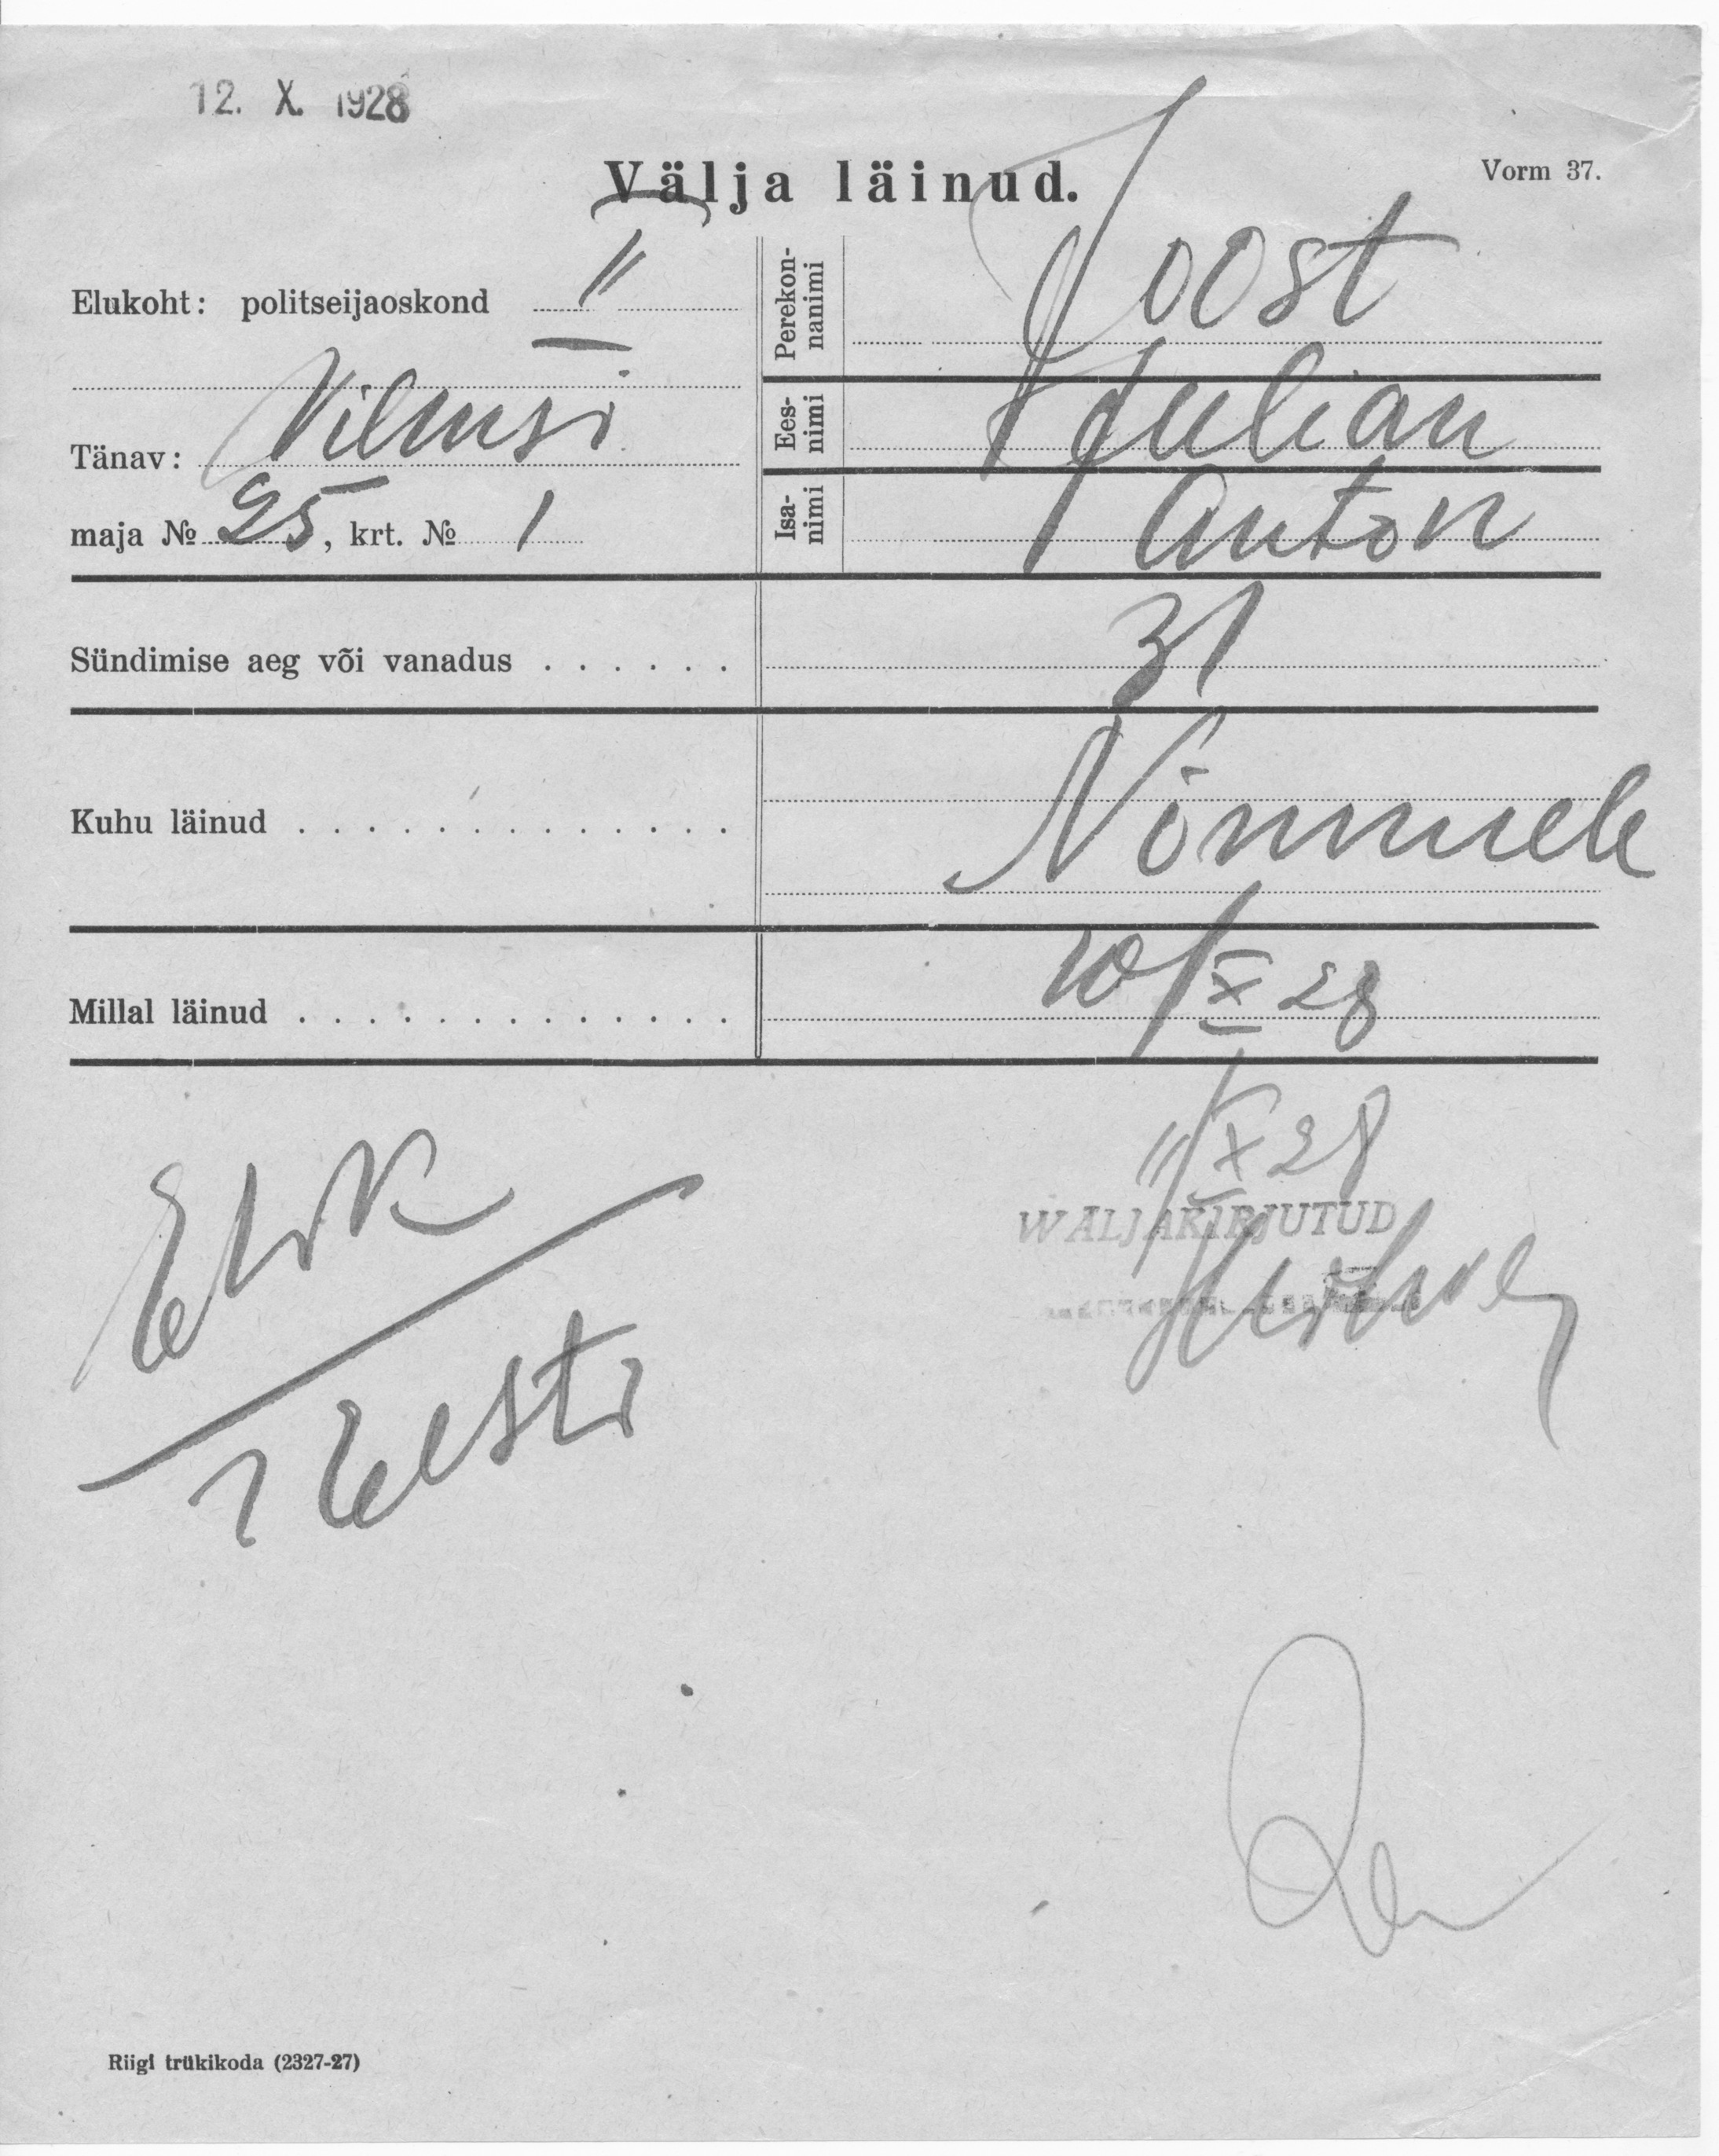 12. X. 1928
Välja läinud.
Vorm 37.
Elukoht: politseijaoskond II
Tänav: Vilmsi
maja № 25, krt. № 1
Perekon-
nanimi
Joost
Ees-
nimi
Julian
Isa-
nimi
Anton
Sündimise aeg või vanadus . . . . . . 31
Kuhu läinud . . . . . . . . . . . . . Nõmmele
Millal läinud . . . . . . . . . . . . . 10/X 28
11/X 28
WÄLJAKIRJUTUD
Eesti
Riigi trükikoda (2327-27)